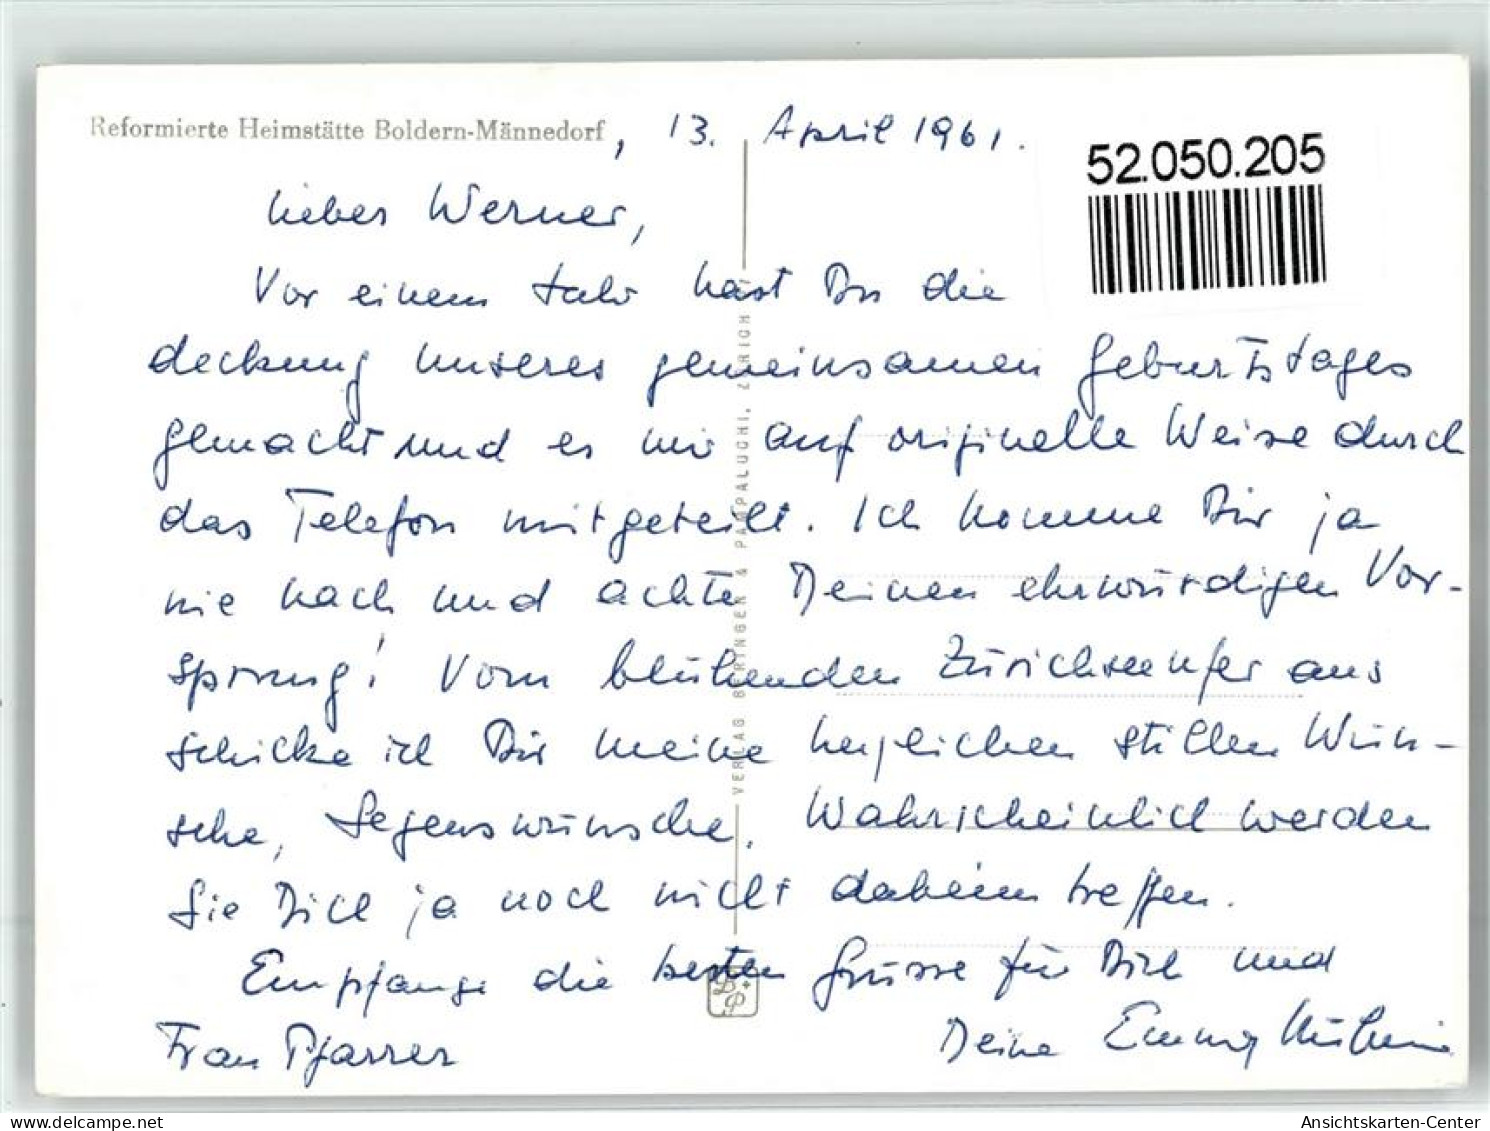 Reformierte Heimstätte Boldern-Männedorf, 13. April 1961.
52.050.205
Lieber Werner,
Vor einem Jahr hast Du die
deckung unseres gemeinsamen Geburtstages
gemacht und es mir auf originelle Weise durch
das Telefon mitgeteilt. Ich komme Dir ja
nie nach und achte Deinen ehrwürdigen Vor-
sprung! Vom blühenden Zürichseeufer aus
schicke ich Dir meine herzlichen stillen Wün-
sche, Segenswünsche. Wahrscheinlich werden
Sie Dich ja noch nicht daheim treffen.
Empfange die besten Grüsse für Dich und
Frau Pfarrer
Deine Emmy
VERLAG BERINGER & PAMPALUCHI, ZÜRICH
Ansichtskarten-Center